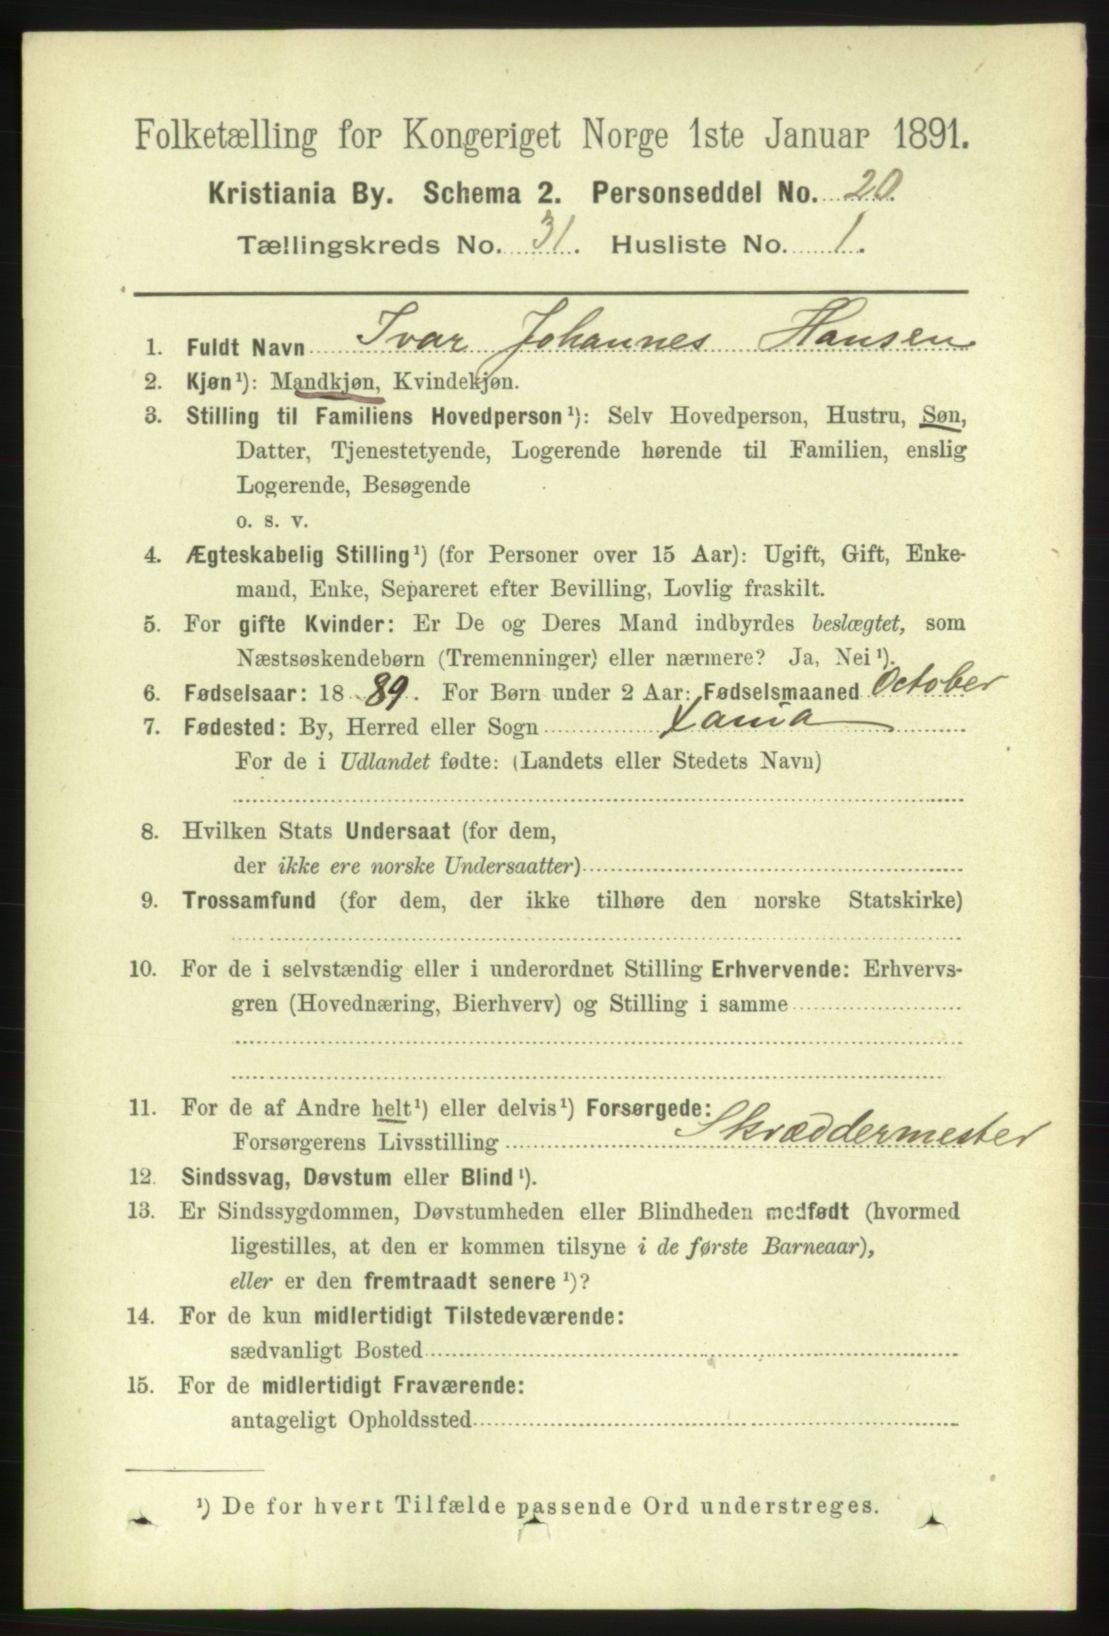 Folketælling for Kongeriget Norge 1ste Januar 1891.
Kristiania By. Schema 2. Personseddel No. 20
Tællingskreds No. 31. Husliste No. 1.
1. Fuldt Navn Ivar Johannes Hansen
2. Kjøn¹): Mandkjøn, Kvindekjøn.
3. Stilling til Familiens Hovedperson¹): Selv Hovedperson, Hustru, Søn,
Datter, Tjenestetyende, Logerende hørende til Familien, enslig
Logerende, Besøgende
o. s. v.
4. Ægteskabelig Stilling¹) (for Personer over 15 Aar): Ugift, Gift, Enke-
mand, Enke, Separeret efter Bevilling, Lovlig fraskilt.
5. For gifte Kvinder: Er De og Deres Mand indbyrdes beslægtet, som
Næstsøskendebørn (Tremenninger) eller nærmere? Ja, Nei¹).
6. Fødselsaar: 1889. For Børn under 2 Aar: Fødselsmaaned October
7. Fødested: By, Herred eller Sogn Xania
For de i Udlandet fødte: (Landets eller Stedets Navn)
8. Hvilken Stats Undersaat (for dem,
der ikke ere norske Undersaatter)
9. Trossamfund (for dem, der ikke tilhøre den norske Statskirke)
10. For de i selvstændig eller i underordnet Stilling Erhvervende: Erhvervs-
gren (Hovednæring, Bierhverv) og Stilling i samme
11. For de af Andre helt¹) eller delvis¹) Forsørgede:
Forsørgerens Livsstilling Skræddermester
12. Sindssvag, Døvstum eller Blind¹).
13. Er Sindssygdommen, Døvstumheden eller Blindheden medfødt (hvormed
ligestilles, at den er kommen tilsyne i de første Barneaar),
eller er den fremtraadt senere¹)?
14. For de kun midlertidigt Tilstedeværende:
sædvanligt Bosted
15. For de midlertidigt Fraværende:
antageligt Opholdssted
¹) De for hvert Tilfælde passende Ord understreges.